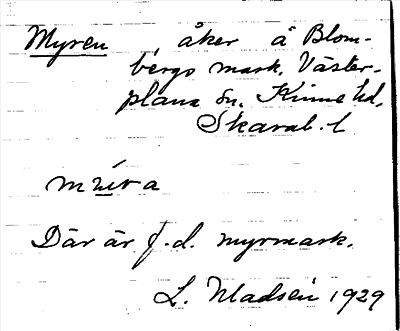 Myren åker å Blom-
bergs mark, Väster-
plana sn. Kinne hd.
Skarab. l
Där är f.d. myrmark.
L. Madsén 1929